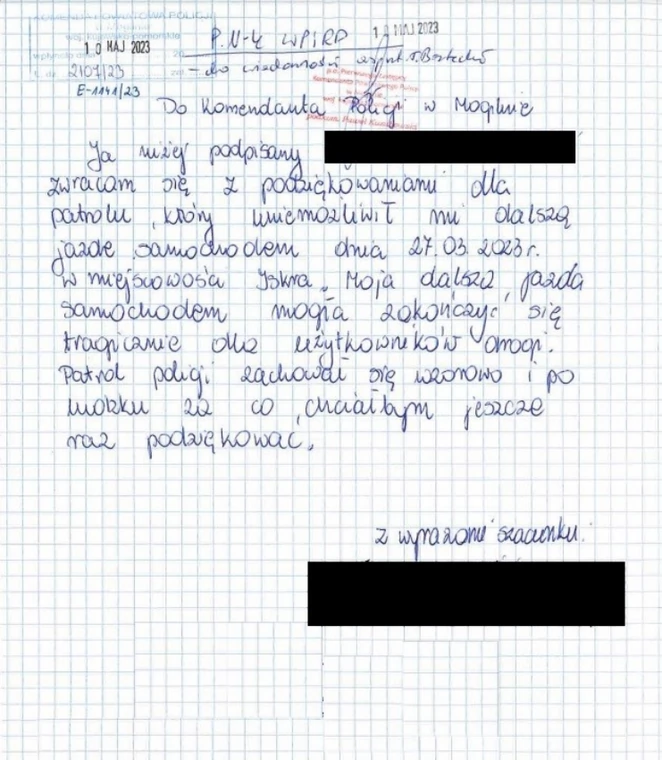 KOMENDA POWIATOWA POLICJI
10 MAJ 2023
2107/23
E-1141/23
P. N-K WPiRD
10 MAJ 2023
- do wiadomości
Do Komendanta Policji w Mogilnie
Ja niżej podpisany
zwracam się z podziękowaniami dla
patrolu, który uniemożliwił mi dalszą
jazdę samochodem dnia 27.03.2023r.
w miejscowości Iskra. Moja dalsza jazda
samochodem mogła zakończyć się
tragicznie dla użytkowników drogi.
Patrol policji zachował się wzorowo i po
ludzku za co chciałbym jeszcze
raz podziękować.
Z wyrazami szacunku.